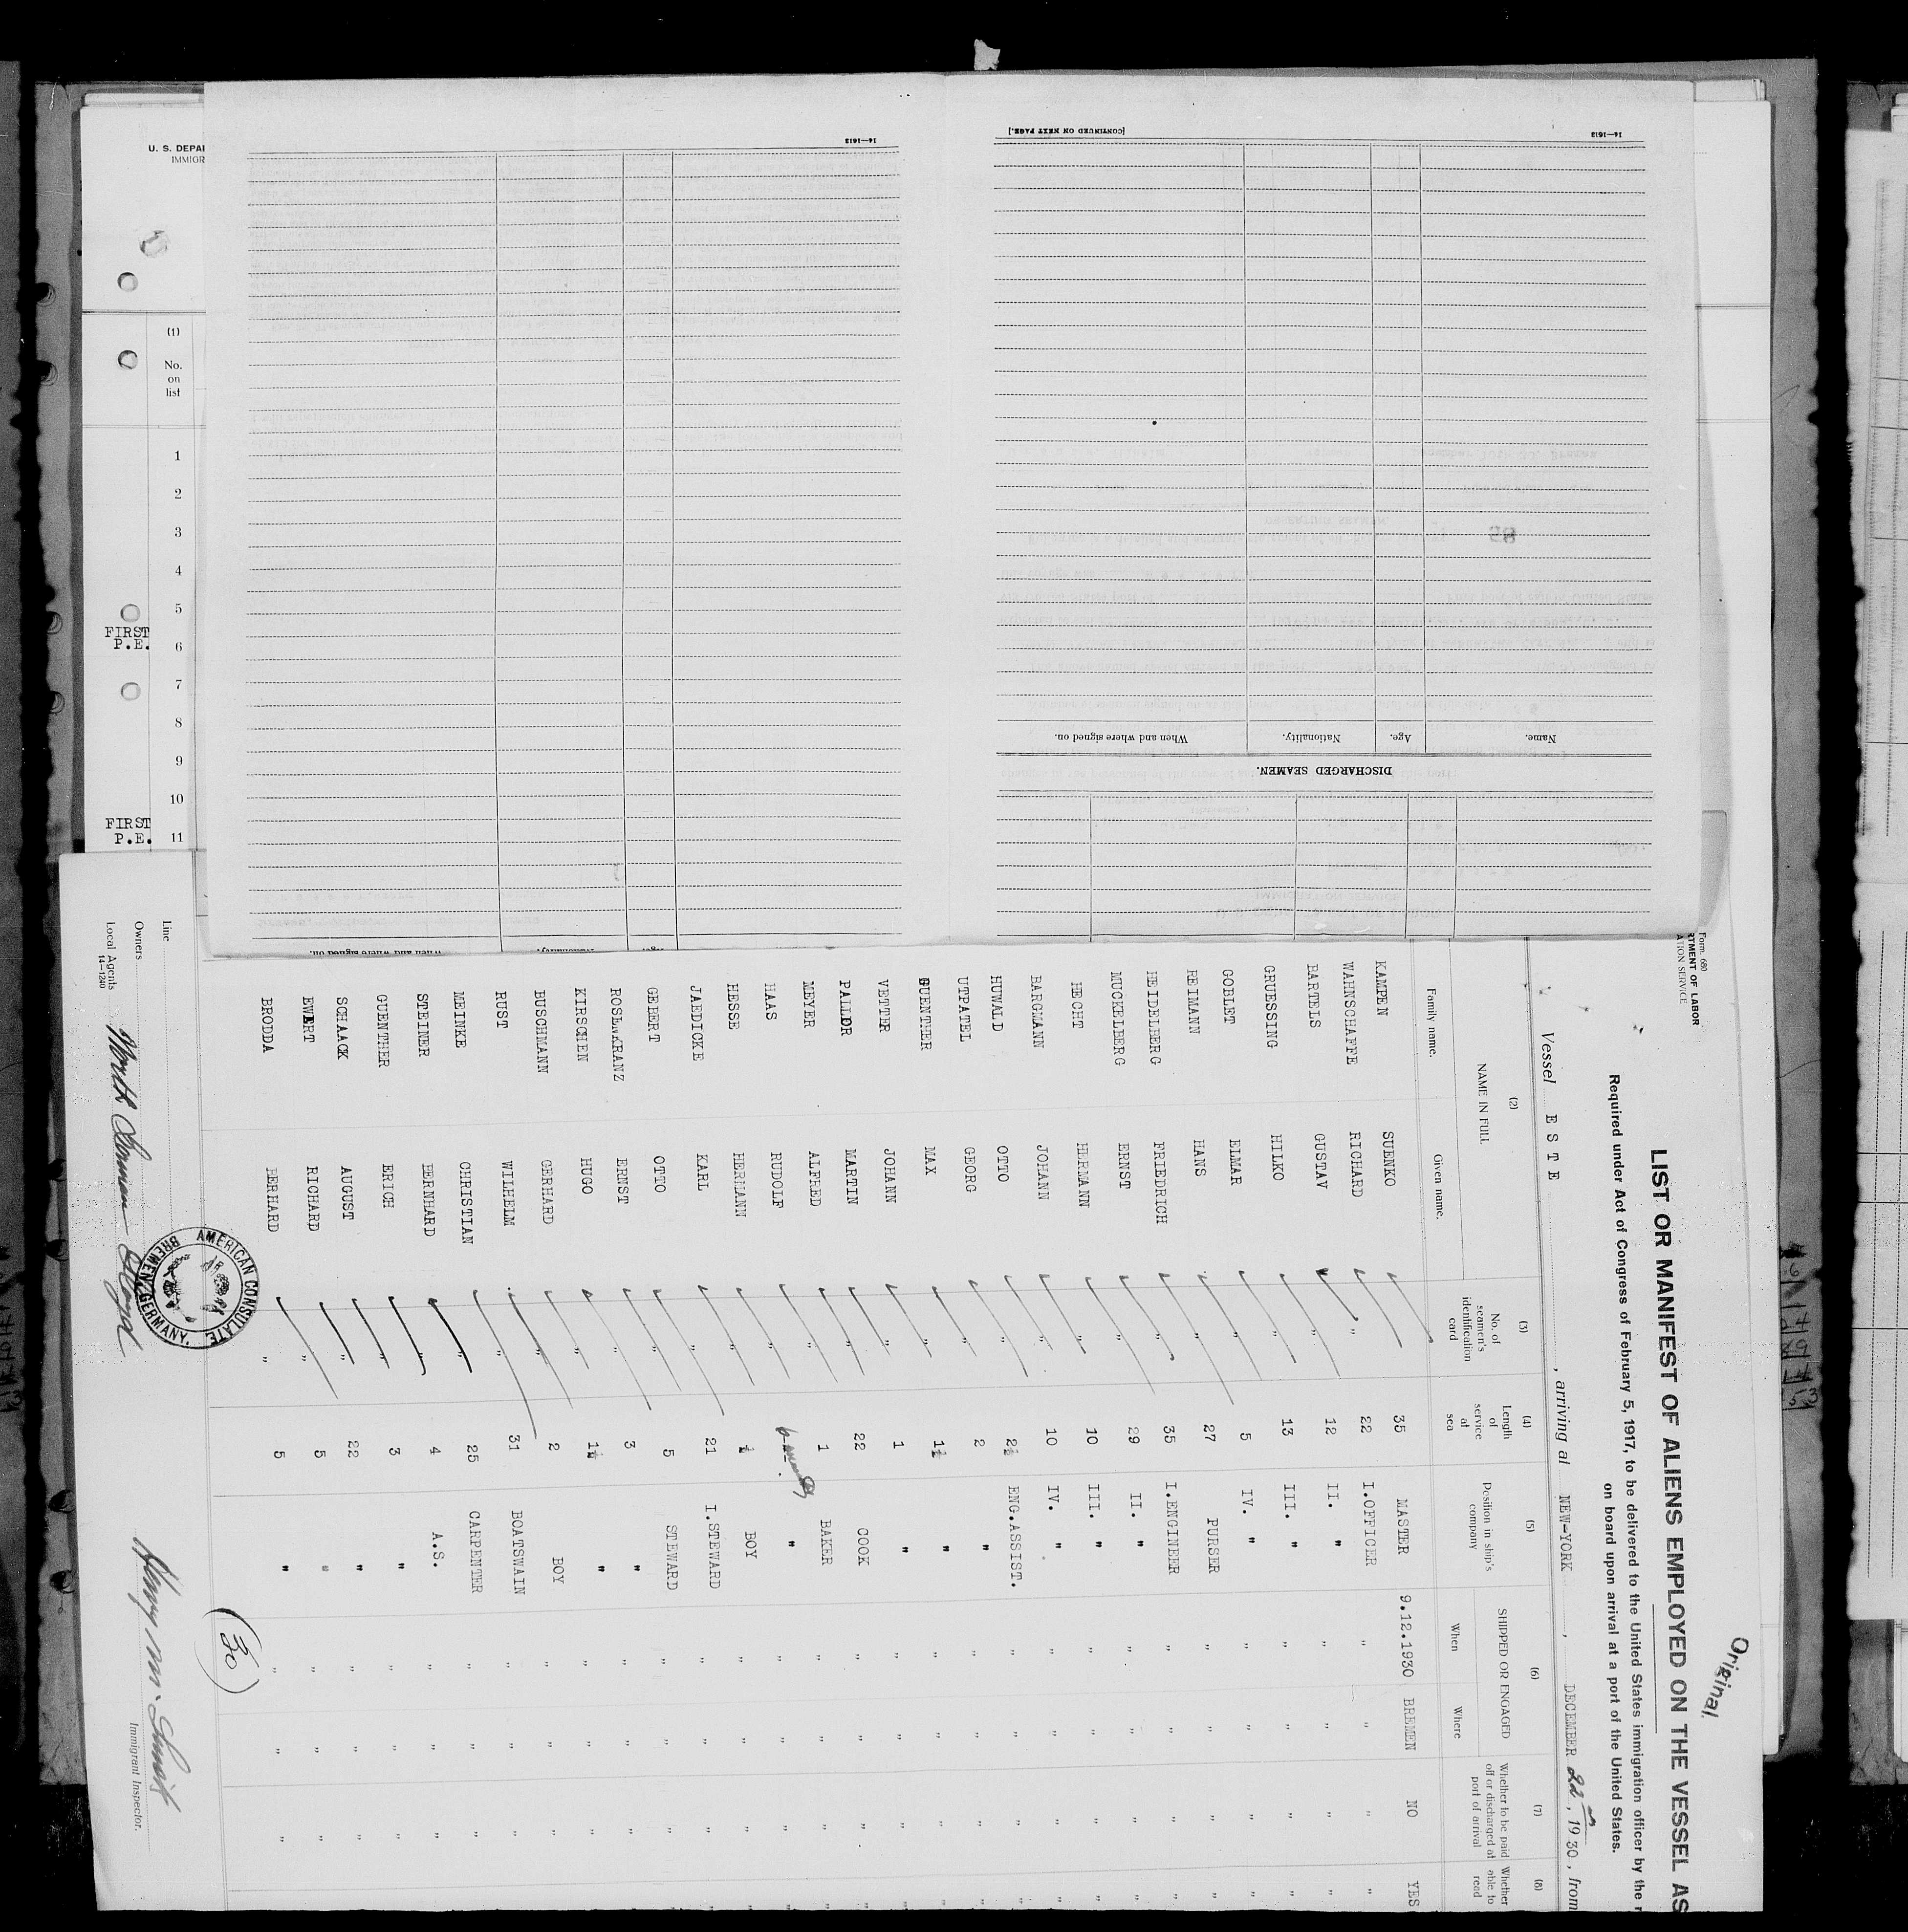 U. S. DEPAR
IMMIGR
(1)
No.
on
list
1
2
3
4
5
FIRST
P.E. 6
7
8
9
10
FIRST
P.E. 11
[CONTINUED ON NEXT PAGE.]
14—1613
14—1613
Name. Age. Nationality. When and where signed on.
DISCHARGED SEAMEN.
Age. Nationality. When and where signed on.
Original
Form 680
RTMENT OF LABOR
ATION SERVICE
LIST OR MANIFEST OF ALIENS EMPLOYED ON THE VESSEL AS
Required under Act of Congress of February 5, 1917, to be delivered to the United States immigration officer by the
on board upon arrival at a port of the United States.
Vessel E S T E , arriving at NEW-YORK , DECEMBER 22nd, 1930, from
(2) (3) (4) (5) (6) (7) (8)
NAME IN FULL
Family name. Given name.
No. of seamen's identification card
Length of service at sea
Position in ship's company
SHIPPED OR ENGAGED
When Where
Whether to be paid off or discharged at port of arrival
Whether able to read
KAMPEN SUENKO 35 MASTER 9.12.1930 BREMEN NO YES
WAHNSCHAFFE RICHARD " 22 I.OFFICER " " " "
BARTELS GUSTAV " 12 II. " " " " "
GRUESSING HILKO " 13 III. " " " " "
GOBLET ELMAR " 5 IV. " " " " "
REIMANN HANS " 27 PURSER " " " "
HEIDELBERG FRIEDRICH " 35 I.ENGINEER " " " "
MUCKELBERG ERNST " 29 II. " " " " "
HECHT HERMANN " 10 III. " " " " "
BARGMANN JOHANN " 10 IV. " " " " "
HUWALD OTTO " 2½ ENG.ASSIST. " " " "
UTPATEL GEORG " 2 " " " " "
GUENTHER MAX " 1½ " " " " "
VETTER JOHANN " 1 " " " " "
PALLOR MARTIN " 22 COOK " " " "
MEYER ALFRED " 1 BAKER " " " "
HAAS RUDOLF " " " " " "
HESSE HERMANN " ½ BOY " " " "
JAEDICKE KARL " 21 I.STEWARD " " " "
GEBERT OTTO " 5 STEWARD " " " "
ROSENKRANZ ERNST " 3 " " " " "
KIRSCHEN HUGO " 1½ " " " " "
BUSCHMANN GERHARD " 2 BOY " " " "
RUST WILHELM " 31 BOATSWAIN " " " "
MEINKE CHRISTIAN " 25 CARPENTER " " " "
STEINER BERNHARD " 4 A.S. " " " "
GUENTHER ERICH " 3 " " " " "
SCHAACK AUGUST " 22 " " " " "
EWERT RICHARD " 5 " " " " "
BRODDA BERHARD " 5 " " " " "
(30)
Line
Owners
Local Agents North German Lloyd
14—1240
AMERICAN CONSULATE
BREMEN, GERMANY.
Immigrant Inspector.